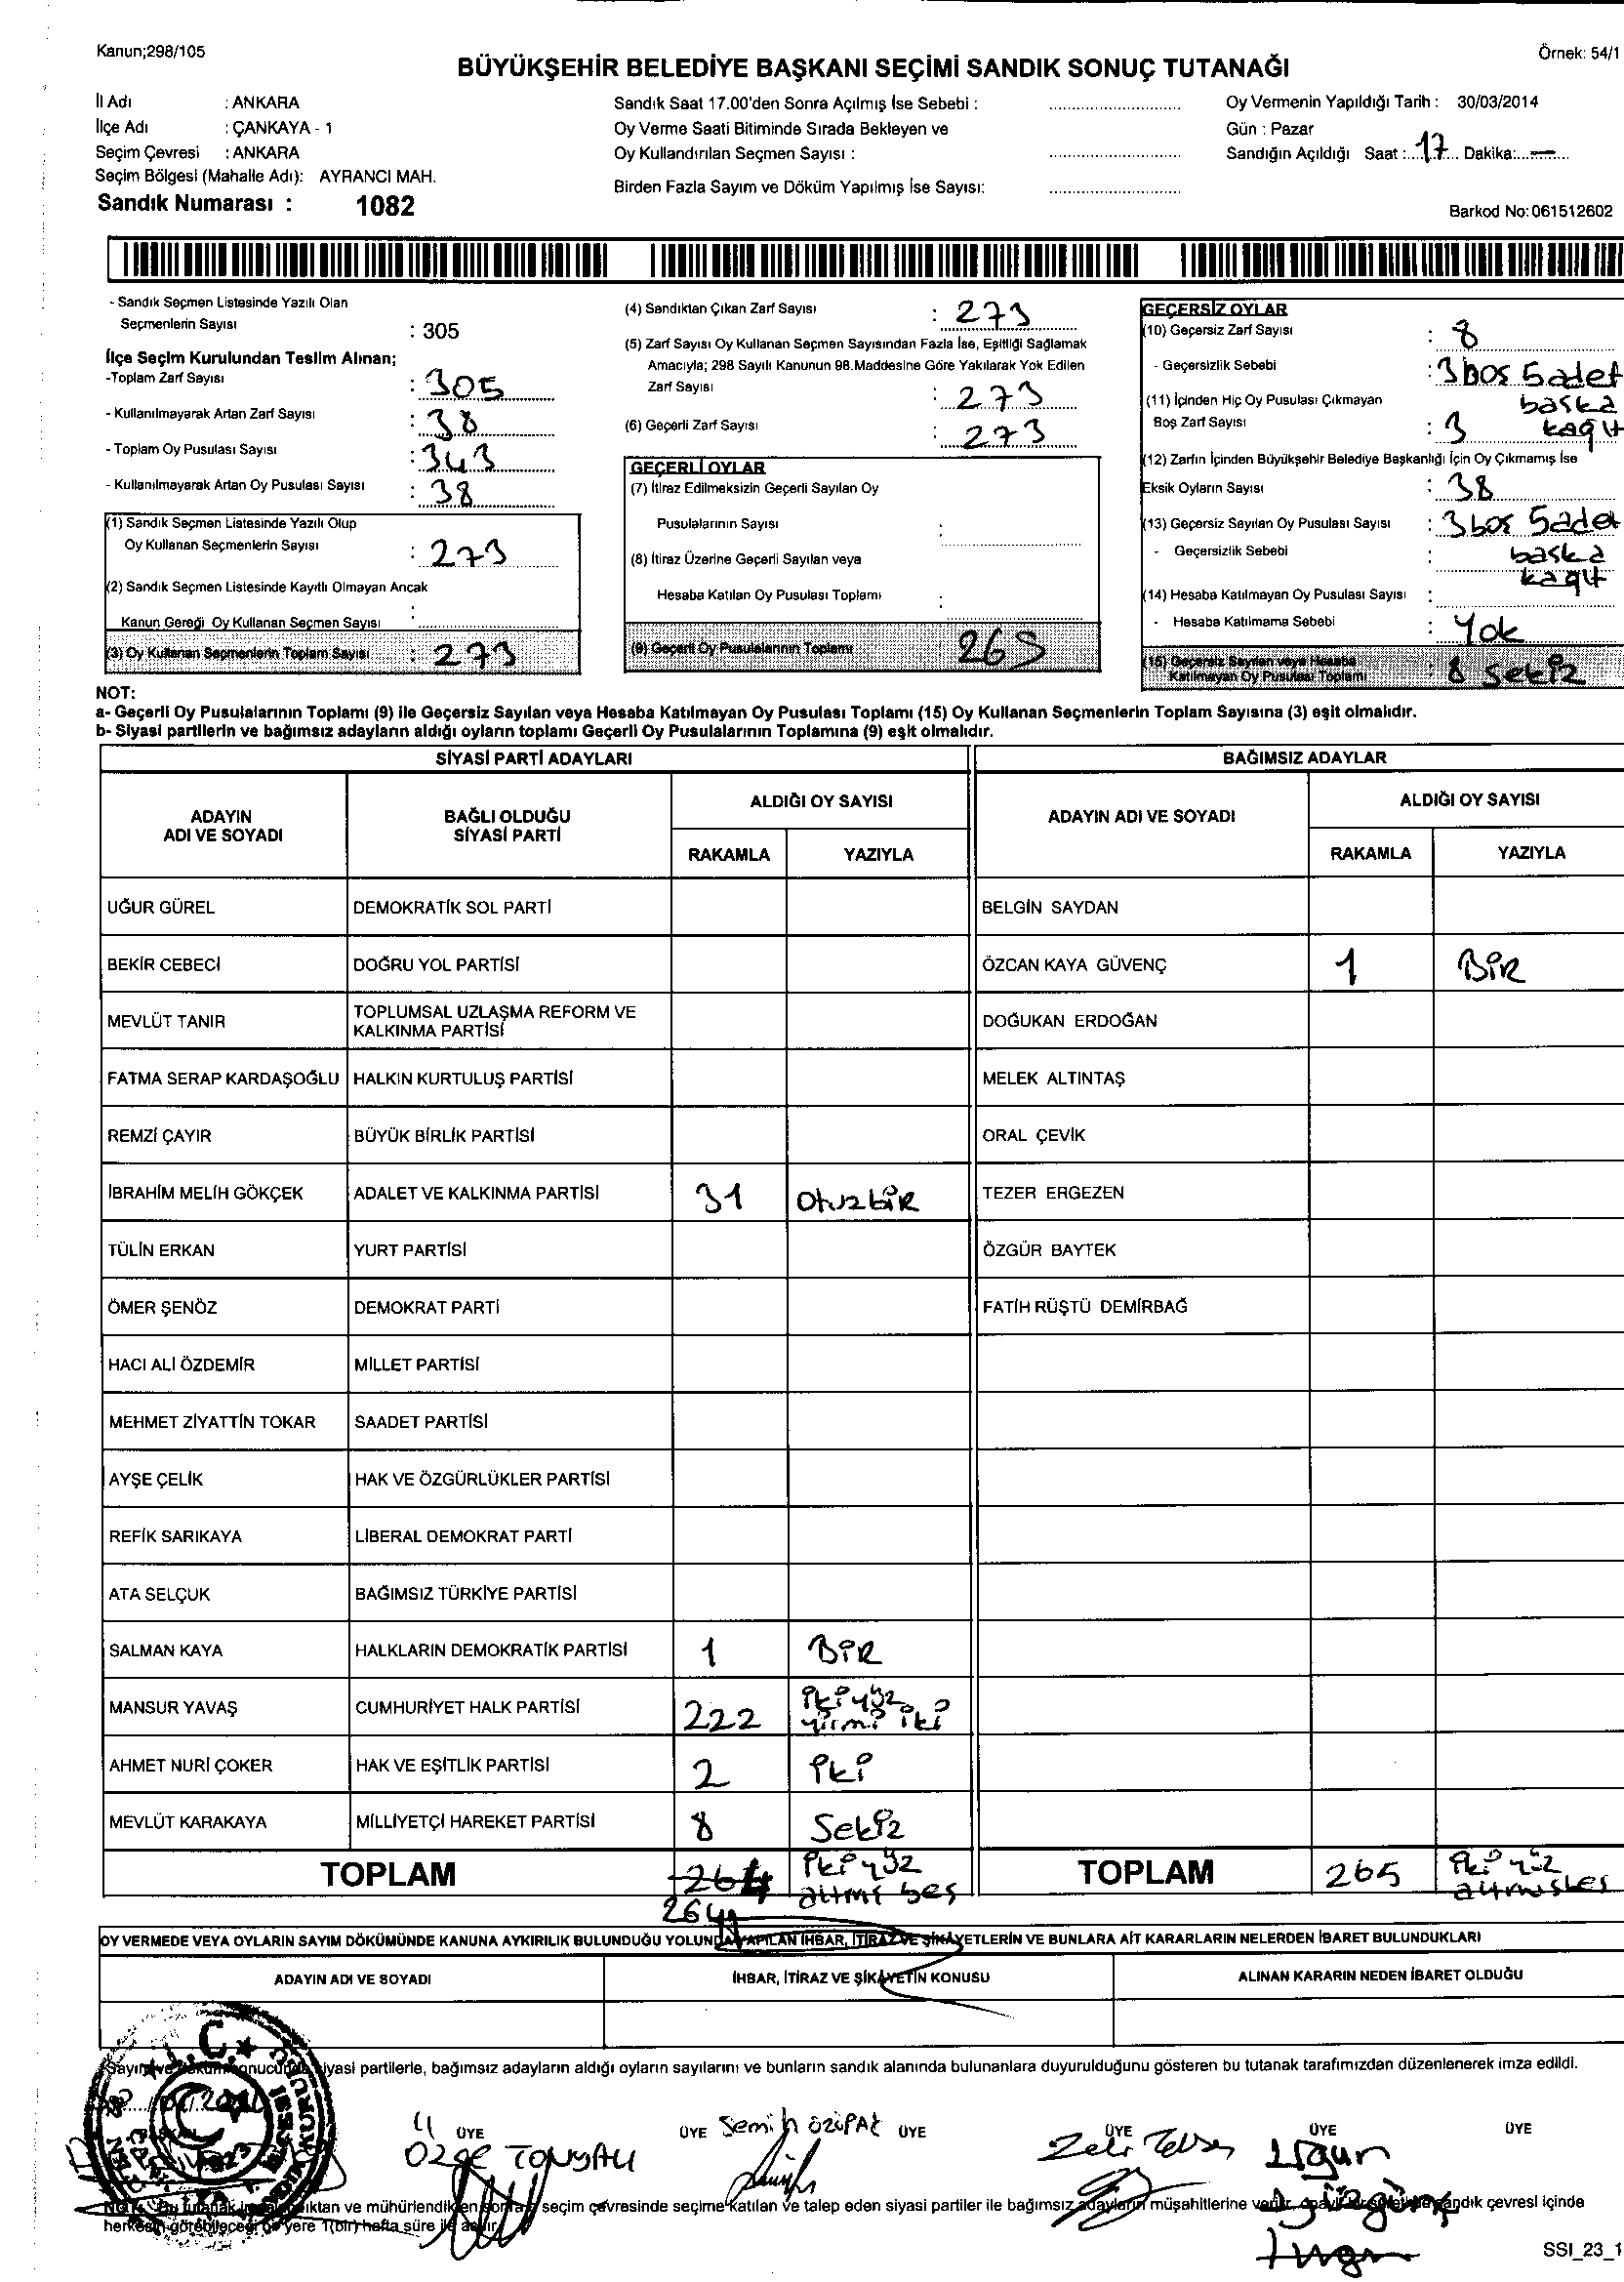 Kanun;298/105
Örnek: 54/1
BÜYÜKŞEHİR BELEDİYE BAŞKANI SEÇİMİ SANDIK SONUÇ TUTANAĞI
İl Adı : ANKARA
İlçe Adı : ÇANKAYA - 1
Seçim Çevresi : ANKARA
Seçim Bölgesi (Mahalle Adı): AYRANCI MAH.
Sandık Numarası : 1082
Sandık Saat 17.00'den Sonra Açılmış İse Sebebi :
Oy Verme Saati Bitiminde Sırada Bekleyen ve
Oy Kullandırılan Seçmen Sayısı :
Birden Fazla Sayım ve Döküm Yapılmış İse Sayısı:
Oy Vermenin Yapıldığı Tarih : 30/03/2014
Gün : Pazar
Sandığın Açıldığı Saat : 17 Dakika: —
Barkod No: 061512602
- Sandık Seçmen Listesinde Yazılı Olan
Seçmenlerin Sayısı : 305
İlçe Seçim Kurulundan Teslim Alınan;
-Toplam Zarf Sayısı : 305
- Kullanılmayarak Artan Zarf Sayısı : 38
- Toplam Oy Pusulası Sayısı : 343
- Kullanılmayarak Artan Oy Pusulası Sayısı : 38
(1) Sandık Seçmen Listesinde Yazılı Olup
Oy Kullanan Seçmenlerin Sayısı : 273
(2) Sandık Seçmen Listesinde Kayıtlı Olmayan Ancak
Kanun Gereği Oy Kullanan Seçmen Sayısı :
(3) Oy Kullanan Seçmenlerin Toplam Sayısı : 273
(4) Sandıktan Çıkan Zarf Sayısı : 273
(5) Zarf Sayısı Oy Kullanan Seçmen Sayısından Fazla İse, Eşitliği Sağlamak
Amacıyla; 298 Sayılı Kanunun 98.Maddesine Göre Yakılarak Yok Edilen
Zarf Sayısı : 273
(6) Geçerli Zarf Sayısı : 273
GEÇERLİ OYLAR
(7) İtiraz Edilmeksizin Geçerli Sayılan Oy
Pusulalarının Sayısı :
(8) İtiraz Üzerine Geçerli Sayılan veya
Hesaba Katılan Oy Pusulası Toplamı :
(9) Geçerli Oy Pusulalarının Toplamı 265
GEÇERSİZ OYLAR
(10) Geçersiz Zarf Sayısı : 8
- Geçersizlik Sebebi : 3 boş 5 adet
başka
kağıt
(11) İçinden Hiç Oy Pusulası Çıkmayan
Boş Zarf Sayısı : 3
(12) Zarfın İçinden Büyükşehir Belediye Başkanlığı İçin Oy Çıkmamış İse
Eksik Oyların Sayısı : 38
(13) Geçersiz Sayılan Oy Pusulası Sayısı : 3 boş 5 adet
- Geçersizlik Sebebi : başka
kağıt
(14) Hesaba Katılmayan Oy Pusulası Sayısı :
- Hesaba Katılmama Sebebi : Yok
(15) Geçersiz Sayılan veya Hesaba
Katılmayan Oy Pusulası Toplamı : 8 sekiz
NOT:
a- Geçerli Oy Pusulalarının Toplamı (9) ile Geçersiz Sayılan veya Hesaba Katılmayan Oy Pusulası Toplamı (15) Oy Kullanan Seçmenlerin Toplam Sayısına (3) eşit olmalıdır.
b- Siyasi partilerin ve bağımsız adayların aldığı oyların toplamı Geçerli Oy Pusulalarının Toplamına (9) eşit olmalıdır.
SİYASİ PARTİ ADAYLARI BAĞIMSIZ ADAYLAR
ADAYIN
ADI VE SOYADI
BAĞLI OLDUĞU
SİYASİ PARTİ
ALDIĞI OY SAYISI
RAKAMLA YAZIYLA
ADAYIN ADI VE SOYADI
ALDIĞI OY SAYISI
RAKAMLA YAZIYLA
UĞUR GÜREL DEMOKRATİK SOL PARTİ BELGİN SAYDAN
BEKİR CEBECİ DOĞRU YOL PARTİSİ ÖZCAN KAYA GÜVENÇ 1 BİR
MEVLÜT TANIR TOPLUMSAL UZLAŞMA REFORM VE
KALKINMA PARTİSİ DOĞUKAN ERDOĞAN
FATMA SERAP KARDAŞOĞLU HALKIN KURTULUŞ PARTİSİ MELEK ALTINTAŞ
REMZİ ÇAYIR BÜYÜK BİRLİK PARTİSİ ORAL ÇEVİK
İBRAHİM MELİH GÖKÇEK ADALET VE KALKINMA PARTİSİ 31 otuzbir TEZER ERGEZEN
TÜLİN ERKAN YURT PARTİSİ ÖZGÜR BAYTEK
ÖMER ŞENÖZ DEMOKRAT PARTİ FATİH RÜŞTÜ DEMİRBAĞ
HACI ALİ ÖZDEMİR MİLLET PARTİSİ
MEHMET ZİYATTİN TOKAR SAADET PARTİSİ
AYŞE ÇELİK HAK VE ÖZGÜRLÜKLER PARTİSİ
REFİK SARIKAYA LİBERAL DEMOKRAT PARTİ
ATA SELÇUK BAĞIMSIZ TÜRKİYE PARTİSİ
SALMAN KAYA HALKLARIN DEMOKRATİK PARTİSİ 1 BİR
MANSUR YAVAŞ CUMHURİYET HALK PARTİSİ 222 ikiyüz
yirmi iki
AHMET NURİ ÇOKER HAK VE EŞİTLİK PARTİSİ 2 iki
MEVLÜT KARAKAYA MİLLİYETÇİ HAREKET PARTİSİ 8 Sekiz
TOPLAM 264 ikiyüz
altmı beş
264
TOPLAM 265 ikiyüz
altmışbeş
OY VERMEDE VEYA OYLARIN SAYIM DÖKÜMÜNDE KANUNA AYKIRILIK BULUNDUĞU YOLUNDA YAPILAN İHBAR, İTİRAZ VE ŞİKAYETLERİN VE BUNLARA AİT KARARLARIN NELERDEN İBARET BULUNDUKLARI
ADAYIN ADI VE SOYADI İHBAR, İTİRAZ VE ŞİKAYETİN KONUSU ALINAN KARARIN NEDEN İBARET OLDUĞU
siyasi partilerle, bağımsız adayların aldığı oyların sayılarını ve bunların sandık alanında bulunanlara duyurulduğunu gösteren bu tutanak tarafımızdan düzenlenerek imza edildi.
T.C.
ÜYE ÜYE Semih ÜYE ÜYE ÜYE ÜYE
NOT: Bu tutanak ve mühürlendikten sonra seçim çevresinde seçime katılan ve talep eden siyasi partiler ile bağımsız adayların müşahitlerine sandık çevresi içinde
herkesin görebileceği bir yere 1(bir) hafta süre ile asılır.
SSI_23_1